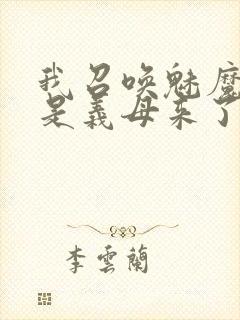 我召唤魅魔
是義母来了
李雲蘭